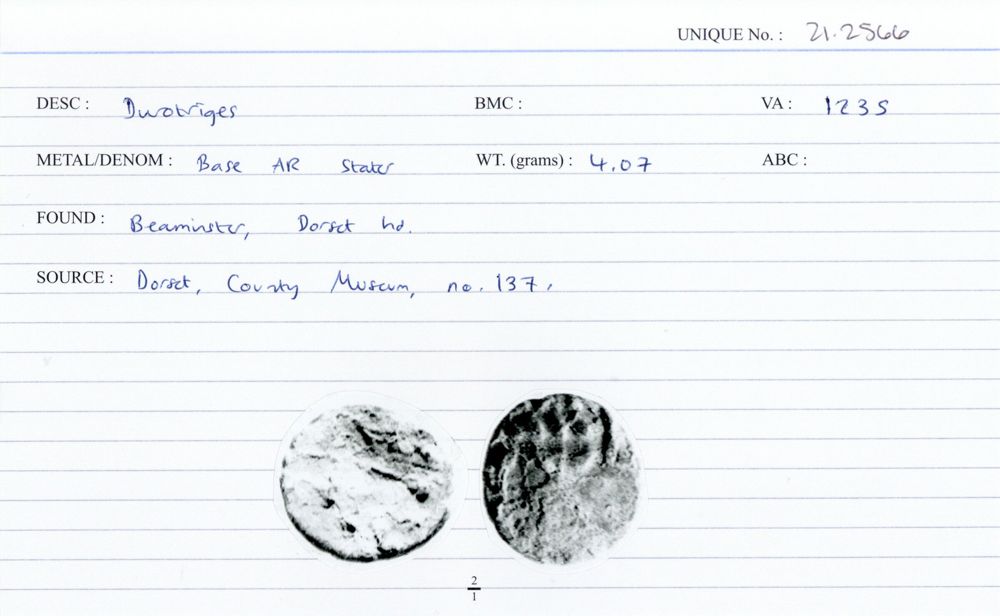 UNIQUE No. : 21.2566
DESC : Durotriges BMC : VA : 1235
METAL/DENOM : Base AR Stater WT. (grams) : 4.07 ABC :
FOUND : Beaminster, Dorset hd.
SOURCE : Dorset, County Museum, no. 137.
2
1